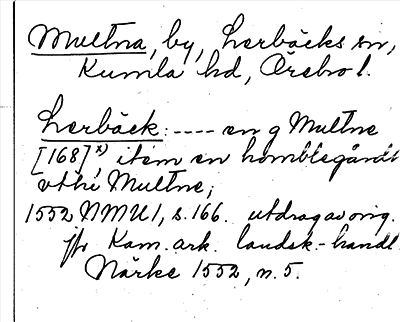 Multna, by, Lerbäcks sn,
Kumla hd, Örebro l.
Lerbäck: ---- en g Multne
[168]x), item en homblegårdt
vthi Multne;
1552 NMU 1, s. 166. utdrag av orig.
jfr Kam. ark. landsk.-handl.
Närke 1552, n. 5.